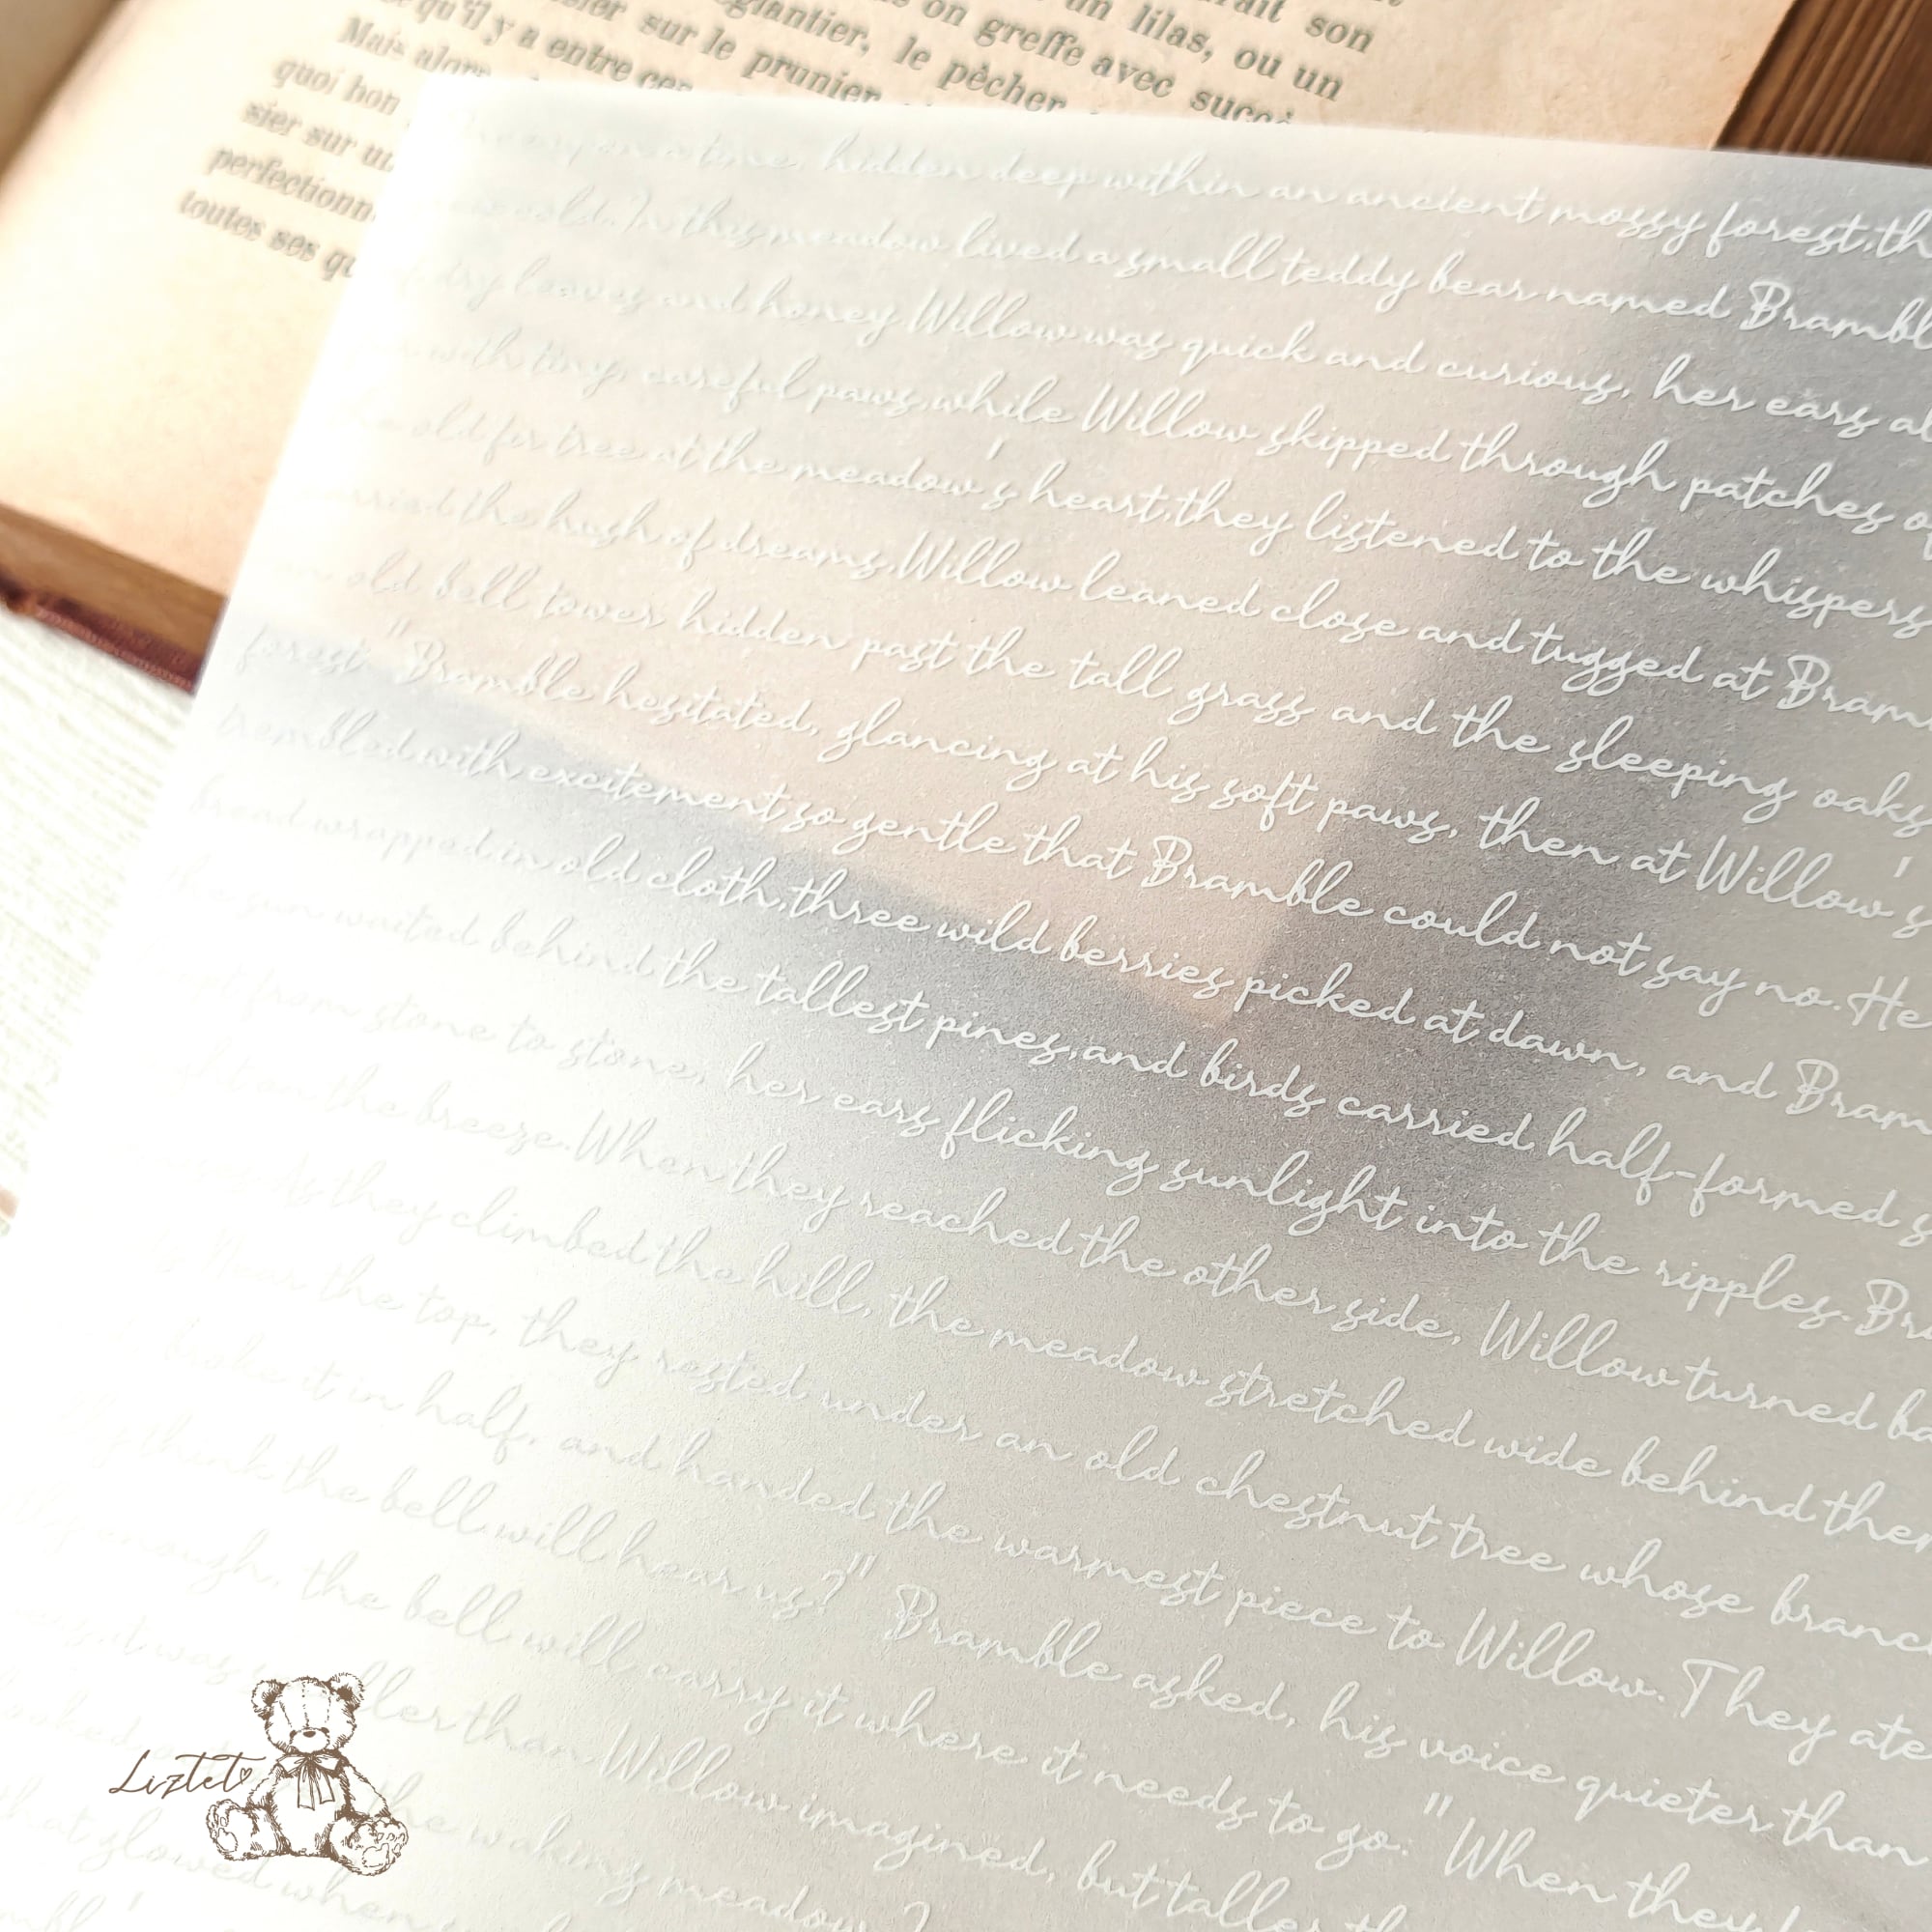 rait son
un lilas, ou un
on greffe avec succè
glantier, le pêcher
sier sur le prunier
qu'il y a entre ces
Mais alors
quoi bon
sier sur un
perfectionn
toutes ses qu
time, hidden deep within an ancient mossy forest, th
old. In this meadow lived a small teddy bear named Brambl
dry leaves and honey Willow was quick and curious, her ears al
with tiny, careful paws, while Willow skipped through patches o
old fir tree at the meadow's heart, they listened to the whispers
rried the hush of dreams, Willow leaned close and tugged at Bram
old bell tower hidden past the tall grass and the sleeping oaks
forest" Bramble hesitated, glancing at his soft paws, then at Willow's
trembled with excitement so gentle that Bramble could not say no. He
bread wrapped in old cloth, three wild berries picked at dawn, and Bram
the sun waited behind the tallest pines, and birds carried half-formed s
from stone to stone, her ears flicking sunlight into the ripples. Bra
on the breeze. When they reached the other side, Willow turned ba
As they climbed the hill, the meadow stretched wide behind them
Near the top, they rested under an old chestnut tree whose branc
broke it in half, and handed the warmest piece to Willow. They ate
think the bell will hear us?" Bramble asked, his voice quieter than
enough, the bell will carry it where it needs to go." When they
it was ller than Willow imagined, but taller th
looked the waking meadow?
that glowed when
Liztet